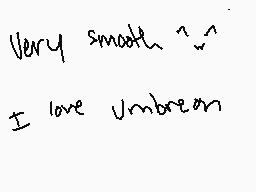 Very smooth ^⌄^
I love Umbreon